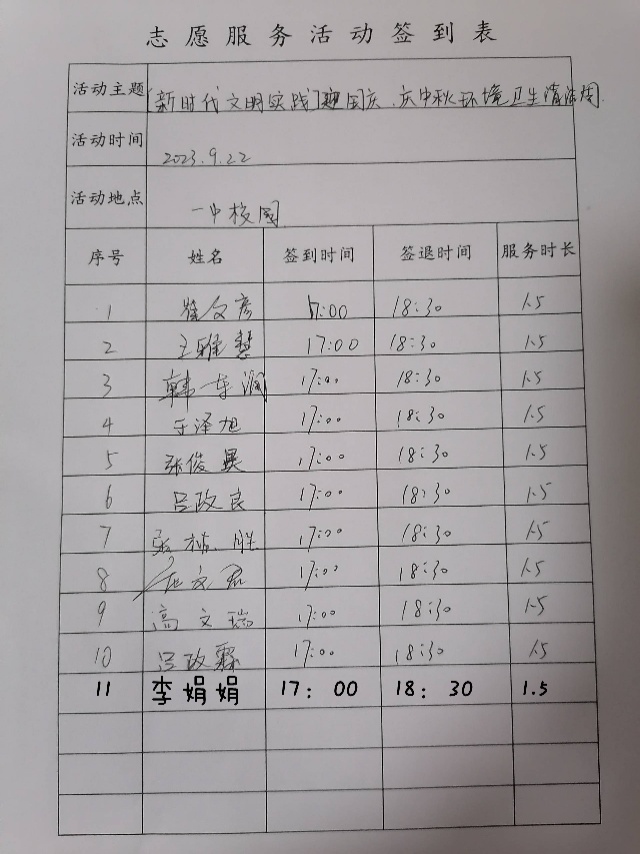 志愿服务活动签到表
活动主题 [新时代文明实践]迎国庆、庆中秋环境卫生清洁周
活动时间 2023.9.22
活动地点 一中校园
序号 姓名 签到时间 签退时间 服务时长
1 崔文彦 17:00 18:30 1.5
2 王雅慧 17:00 18:30 1.5
3 韩一东润 17:00 18:30 1.5
4 于泽旭 17:00 18:30 1.5
5 张俊昊 17:00 18:30 1.5
6 吕政良 17:00 18:30 1.5
7 胜 17:00 18:30 1.5
8 文君 17:00 18:30 1.5
9 高文瑞 17:00 18:30 1.5
10 吕政霖 17:00 18:30 1.5
11 李娟娟 17：00 18：30 1.5